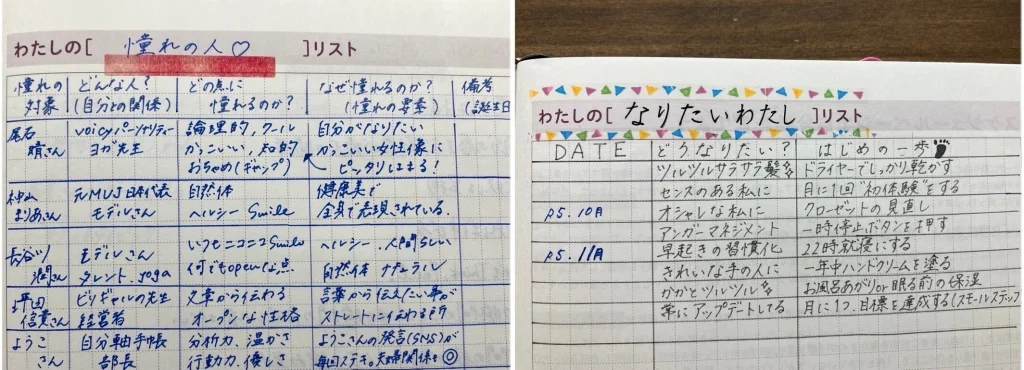 わたしの[ 憧れの人♡ ]リスト
憧れの対象 どんな人?(自分との関係) どの点に憧れるのか? なぜ憧れるのか?(憧れの要素) 備考(誕生日
尾石晴さん voicyパーソナリティー ヨガ先生 論理的,クール かっこいい,知的 おちゃめ(ギャップ) 自分がなりたい かっこいい女性像に ピッタリはまる!
神山まりあさん 元MUJ日本代表 モデルさん 自然体 ヘルシー Smile 健康美で 全身で表現されている。
長谷川潤さん モデルさん タレント.yoga いつもニコニコSmile 何でもopenな点 ヘルシー.人間らしい 自然体 ナチュラル
坪田信貴さん ビリギャルの先生 経営者 文章から伝わる オープンな性格 言葉から伝えたい事が ストレートに伝わる所
ようこさん 自分軸手帳 部長 分析力.温かさ 行動力.優しさ ようこさんの発言(SNS)が 毎回ステキ。夫婦関係も◎
わたしの[ なりたいわたし ]リスト
DATE どうなりたい? はじめの一歩
ツルツルサラサラ髪 ドライヤーでしっかり乾かす
センスのある私に 月に1回"初体験"をする
25.10月 オシャレな私に クローゼットの見直し
アンガーマネジメント 一時停止ボタンを押す
25.11月 早起きの習慣化 22時就寝にする
きれいな手の人に 一年中ハンドクリームを塗る
かかとツルツル お風呂あがりor眠る前の保湿
常にアップデートしてる 月に1つ.目標を達成する(スモールステップ